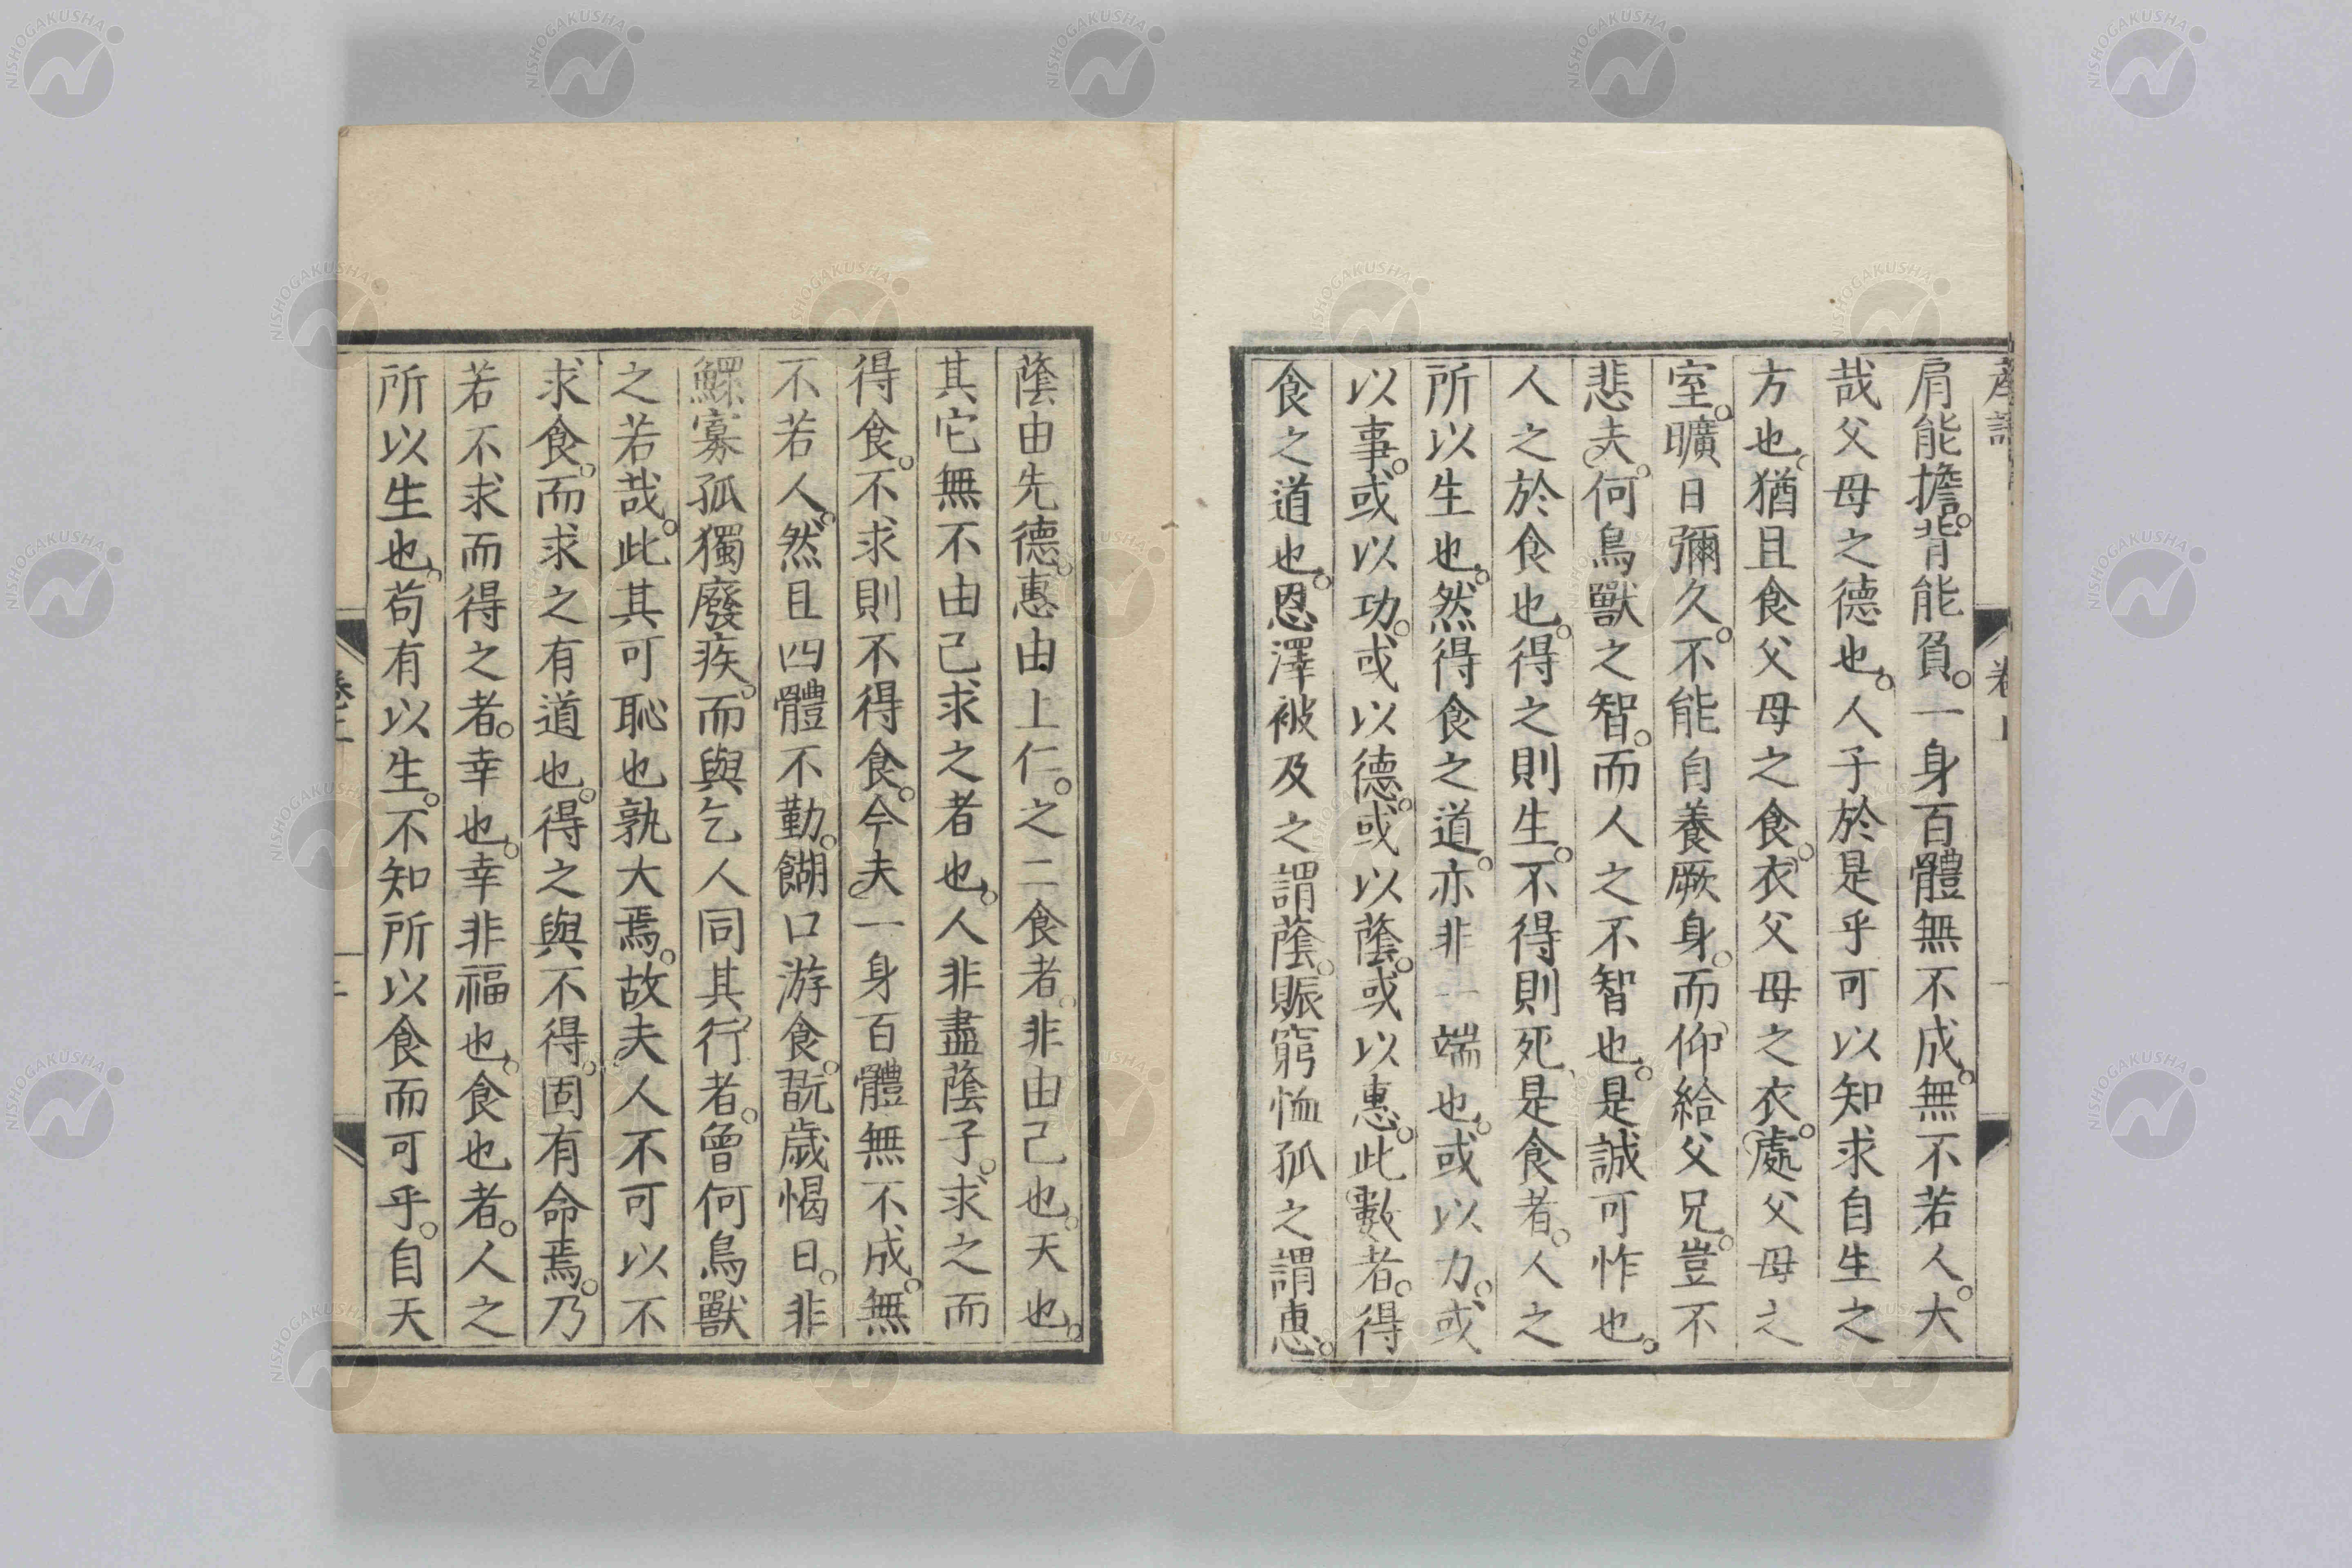 肩能擔。背能負。一身百體無不成。無不若人。大
哉父母之德也。人子於是乎可以知求自生之
方也。猶且食父母之食。衣父母之衣。處父母之
室。曠日彌久。不能自養厥身。而仰給父兄。豈不
悲夫。何鳥獸之智。而人之不智也。是誠可怍也。
人之於食也。得之則生。不得則死、是食者。人之
所以生也。然得食之道。亦非一端也。或以力。或
以事。或以功。或以德。或以蔭。或以惠。此數者。得
食之道也。恩澤被及之謂蔭。賑窮恤孤之謂惠。
蔭由先德。惠由上仁。之二食者。非由己也。天也。
其它無不由己求之者也。人非盡蔭子。求之而
得食。不求則不得食。今夫一身百體無不成。無
不若人。然且四體不勤。餬口游食。翫歲愒日。非
鰥寡孤獨廢疾。而與乞人同其行者。曾何鳥獸
之若哉。此其可恥也孰大焉。故夫人不可以不
求食。而求之有道也。得之與不得。固有命焉。乃
若不求而得之者。幸也。幸非福也。食也者。人之
所以生也。苟有以生。不知所以食而可乎。自天
卷上
NISHOGAKUSHA